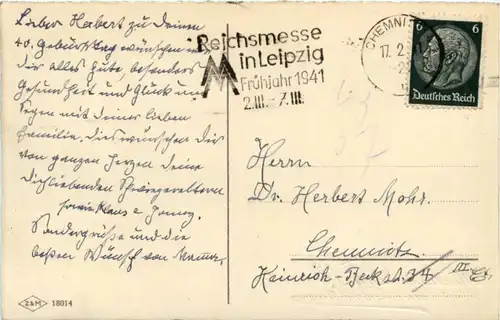 Lieber Herbert zu Deinem
40. Geburtstag wünschen wir
Dir alles Gute, besonders
Gesundheit und Glück und
Segen mit Deiner lieben
Familie. Dies wünschen Dir
von ganzen Herzen Deine
Dichliebenden Schwiegereltern
sowie Klaus
Sondergrüsse und die
besten Wünsch von
Z&M 18014
Reichsmesse
in Leipzig
Frühjahr 1941
2.III.-7.III.
CHEMNI
17.2.
6 6
Deutsches Reich
Herrn
Dr. Herbert Mohr.
Chemnitz
Heinrich-Beckstr. 34 III